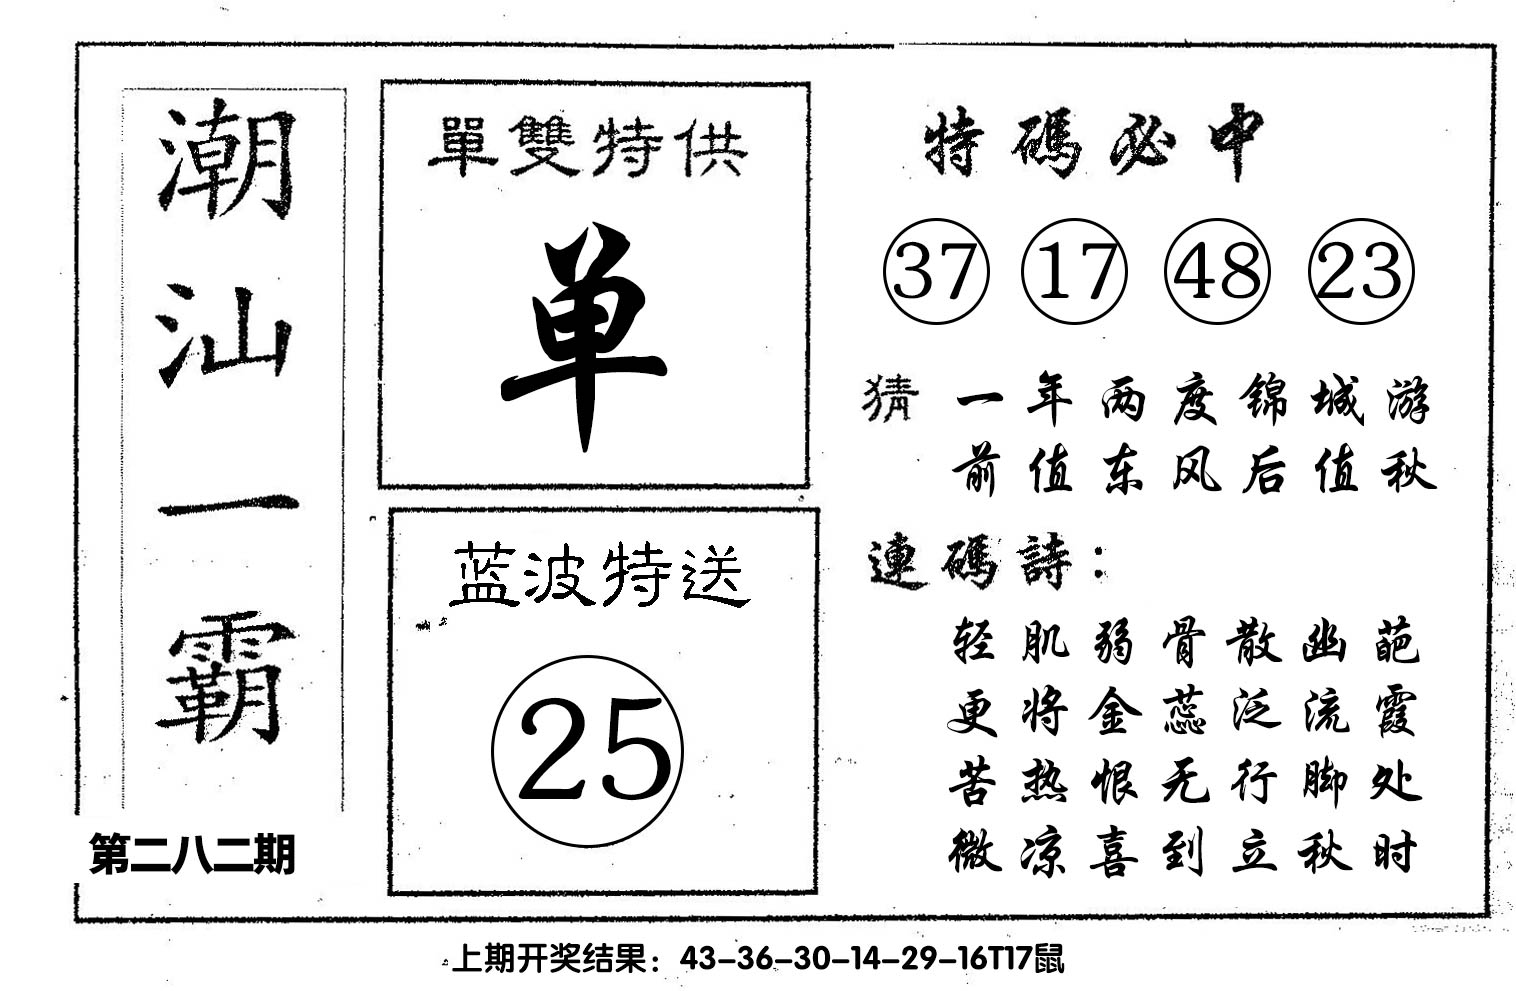 潮汕一霸
第二八二期
單雙特供
单
蓝波特送
25
特碼必中
37 17 48 23
猜 一年两度锦城游
前值东风后值秋
連碼詩：
轻肌弱骨散幽葩
更将金蕊泛流霞
苦热恨无行脚处
微凉喜到立秋时
上期开奖结果：43-36-30-14-29-16T17鼠